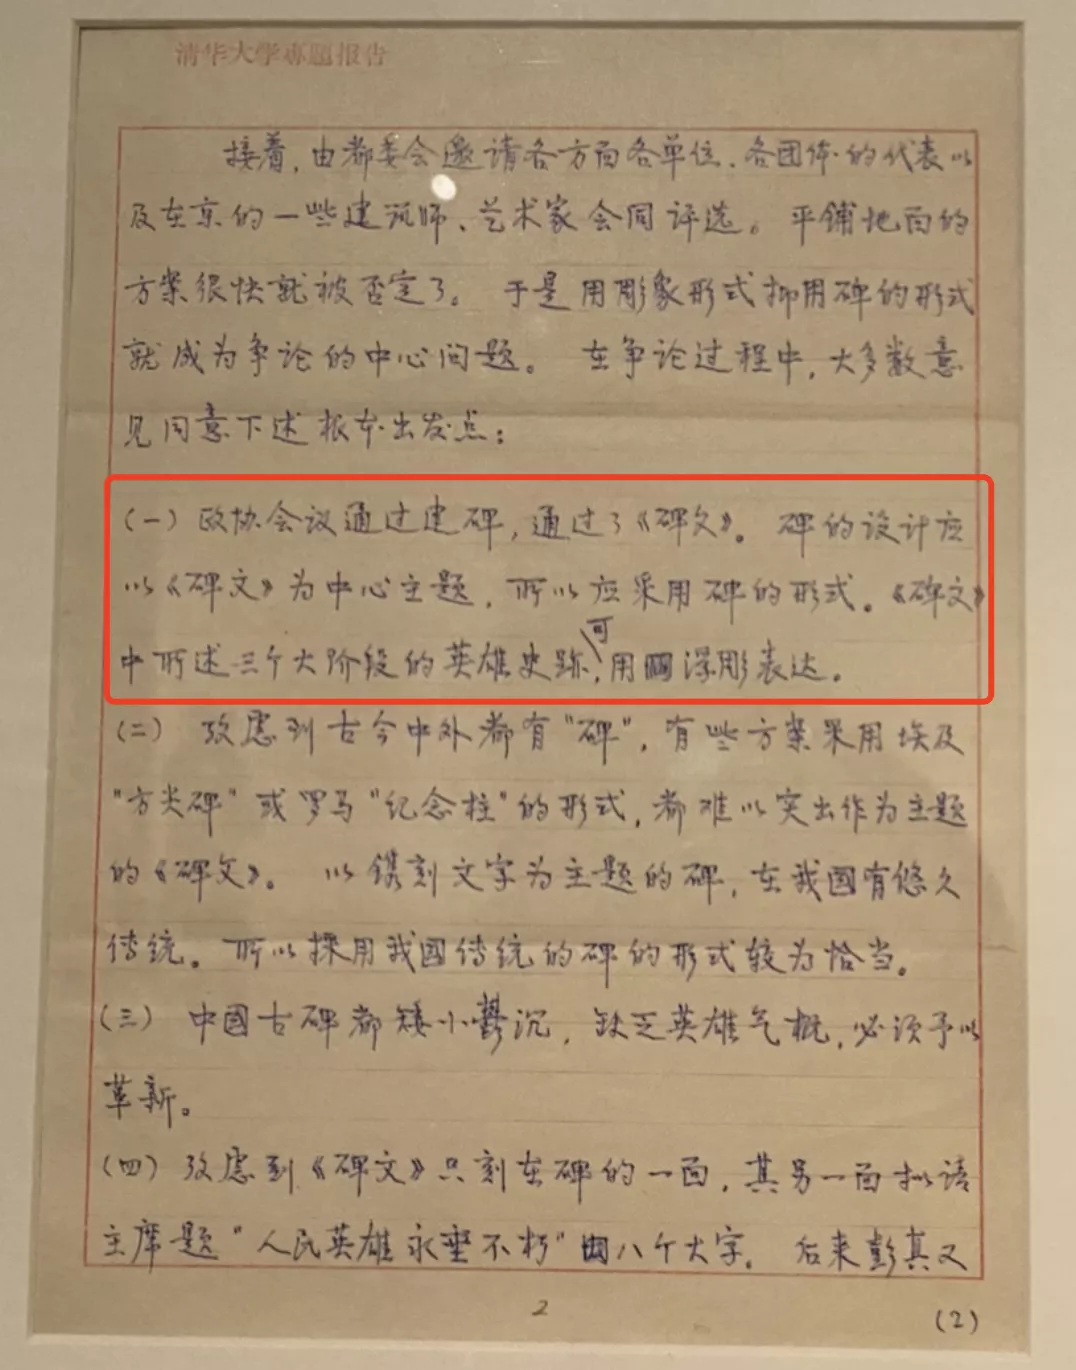 清华大学専题报告
接着，由都委会邀请各方面各单位、各团体的代表以
及在京的一些建筑师、艺术家会同评选。平铺地面的
方案很快就被否定了。于是用彫象形式抑用碑的形式
就成为争论的中心问题。在争论过程中，大多数意
见同意下述根本出发点：
(一)政协会议通过建碑，通过了《碑文》。碑的设计应
以《碑文》为中心主题，所以应采用碑的形式。《碑文》
中所述三个大阶段的英雄史跡，可用浮彫表达。
(二) 攷虑到古今中外都有"碑"，有些方案采用埃及
"方尖碑"或罗马"纪念柱"的形式，都难以突出作为主题
的《碑文》。以镌刻文字为主题的碑，在我國有悠久
传统。所以採用我國传统的碑的形式较为恰当。
(三) 中國古碑都矮小鬱沉，缺乏英雄气概，必须予以
革新。
(四) 攷虑到《碑文》只刻在碑的一面，其另一面拟请
主席题"人民英雄永垂不朽"八个大字。后来彭真又
2
(2)